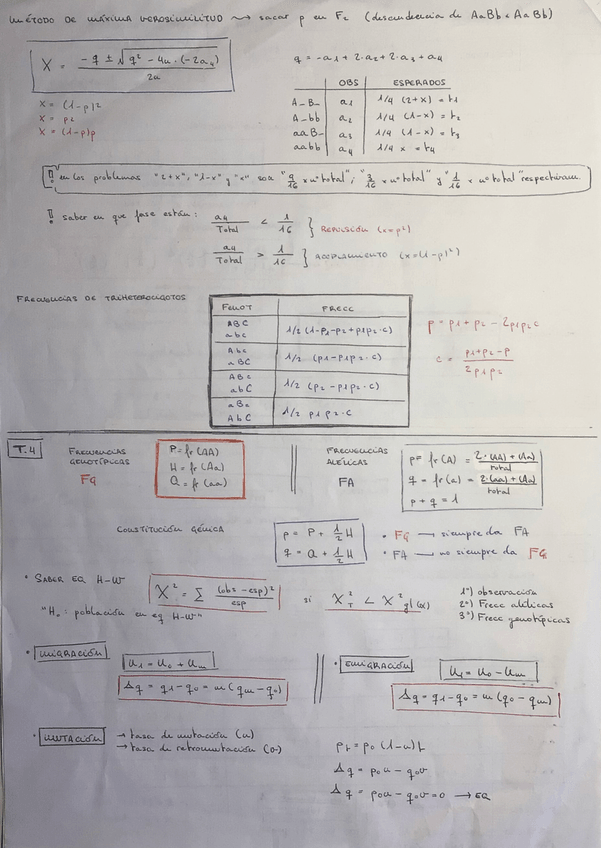 MÉTODO DE MÁXIMA VEROSIMILITUD ⇝ sacar p en F2 (descendencia de AaBb x AaBb)
X = (-q ± √(q² - 4n·(-2a4))) / 2n
q = -a1 + 2·a2 + 2·a3 + a4
X = (1-p)²
X = p²
X = (1-p)p
OBS ESPERADOS
A_B_ a1 1/4 (2+x) = t1
A_bb a2 1/4 (1-x) = t2
aaB_ a3 1/4 (1-x) = t3
aabb a4 1/4 x = t4
!! en los problemas "2+x", "1-x" y "x" son "9/16 x nº total", "3/16 x nº total" y "1/16 x nº total" respectivam.
!! saber en que fase están: a4/Total < 1/16 } REPULSIÓN (x=p²)
a4/Total > 1/16 } ACOPLAMIENTO (x=(1-p)²)
FRECUENCIAS DE TRIHETEROCIGOTOS
FENOT FRECC
ABC
abc 1/2 (1-p1-p2+p1p2·c)
Abc
aBC 1/2 (p1-p1p2·c)
ABc
abC 1/2 (p2-p1p2·c)
aBc
AbC 1/2 p1p2·c
p = p1+p2 - 2p1p2c
c = (p1+p2-p) / 2p1p2
T.4
FRECUENCIAS GENOTÍPICAS
FG
P = fr(AA)
H = fr(Aa)
Q = fr(aa)
FRECUENCIAS ALÉLICAS
FA
p = fr(A) = (2·(AA) + (Aa)) / total
q = fr(a) = (2·(aa) + (Aa)) / total
p + q = 1
CONSTITUCIÓN GÉNICA
p = P + 1/2 H
q = Q + 1/2 H
• FG — siempre da FA
• FA — no siempre da FG
• SABER EQ H-W
X² = Σ (obs - esp)² / esp
si X²T < X² gl(α)
1º) observación
2º) Frecc alélicas
3º) Frecc genotípicas
"H₀: población en eq H-W"
• INMIGRACIÓN
N1 = N0 + Nm
Δq = q1-q0 = m(qm-q0)
• EMIGRACIÓN
N1 = N0 - Nm
Δq = q1-q0 = m(q0-qm)
• MUTACIÓN → tasa de mutación (u)
→ tasa de retromutación (v)
pt = p0(1-u)t
Δq = p0u - q0v
Δq = p0u - q0v = 0 → EQ